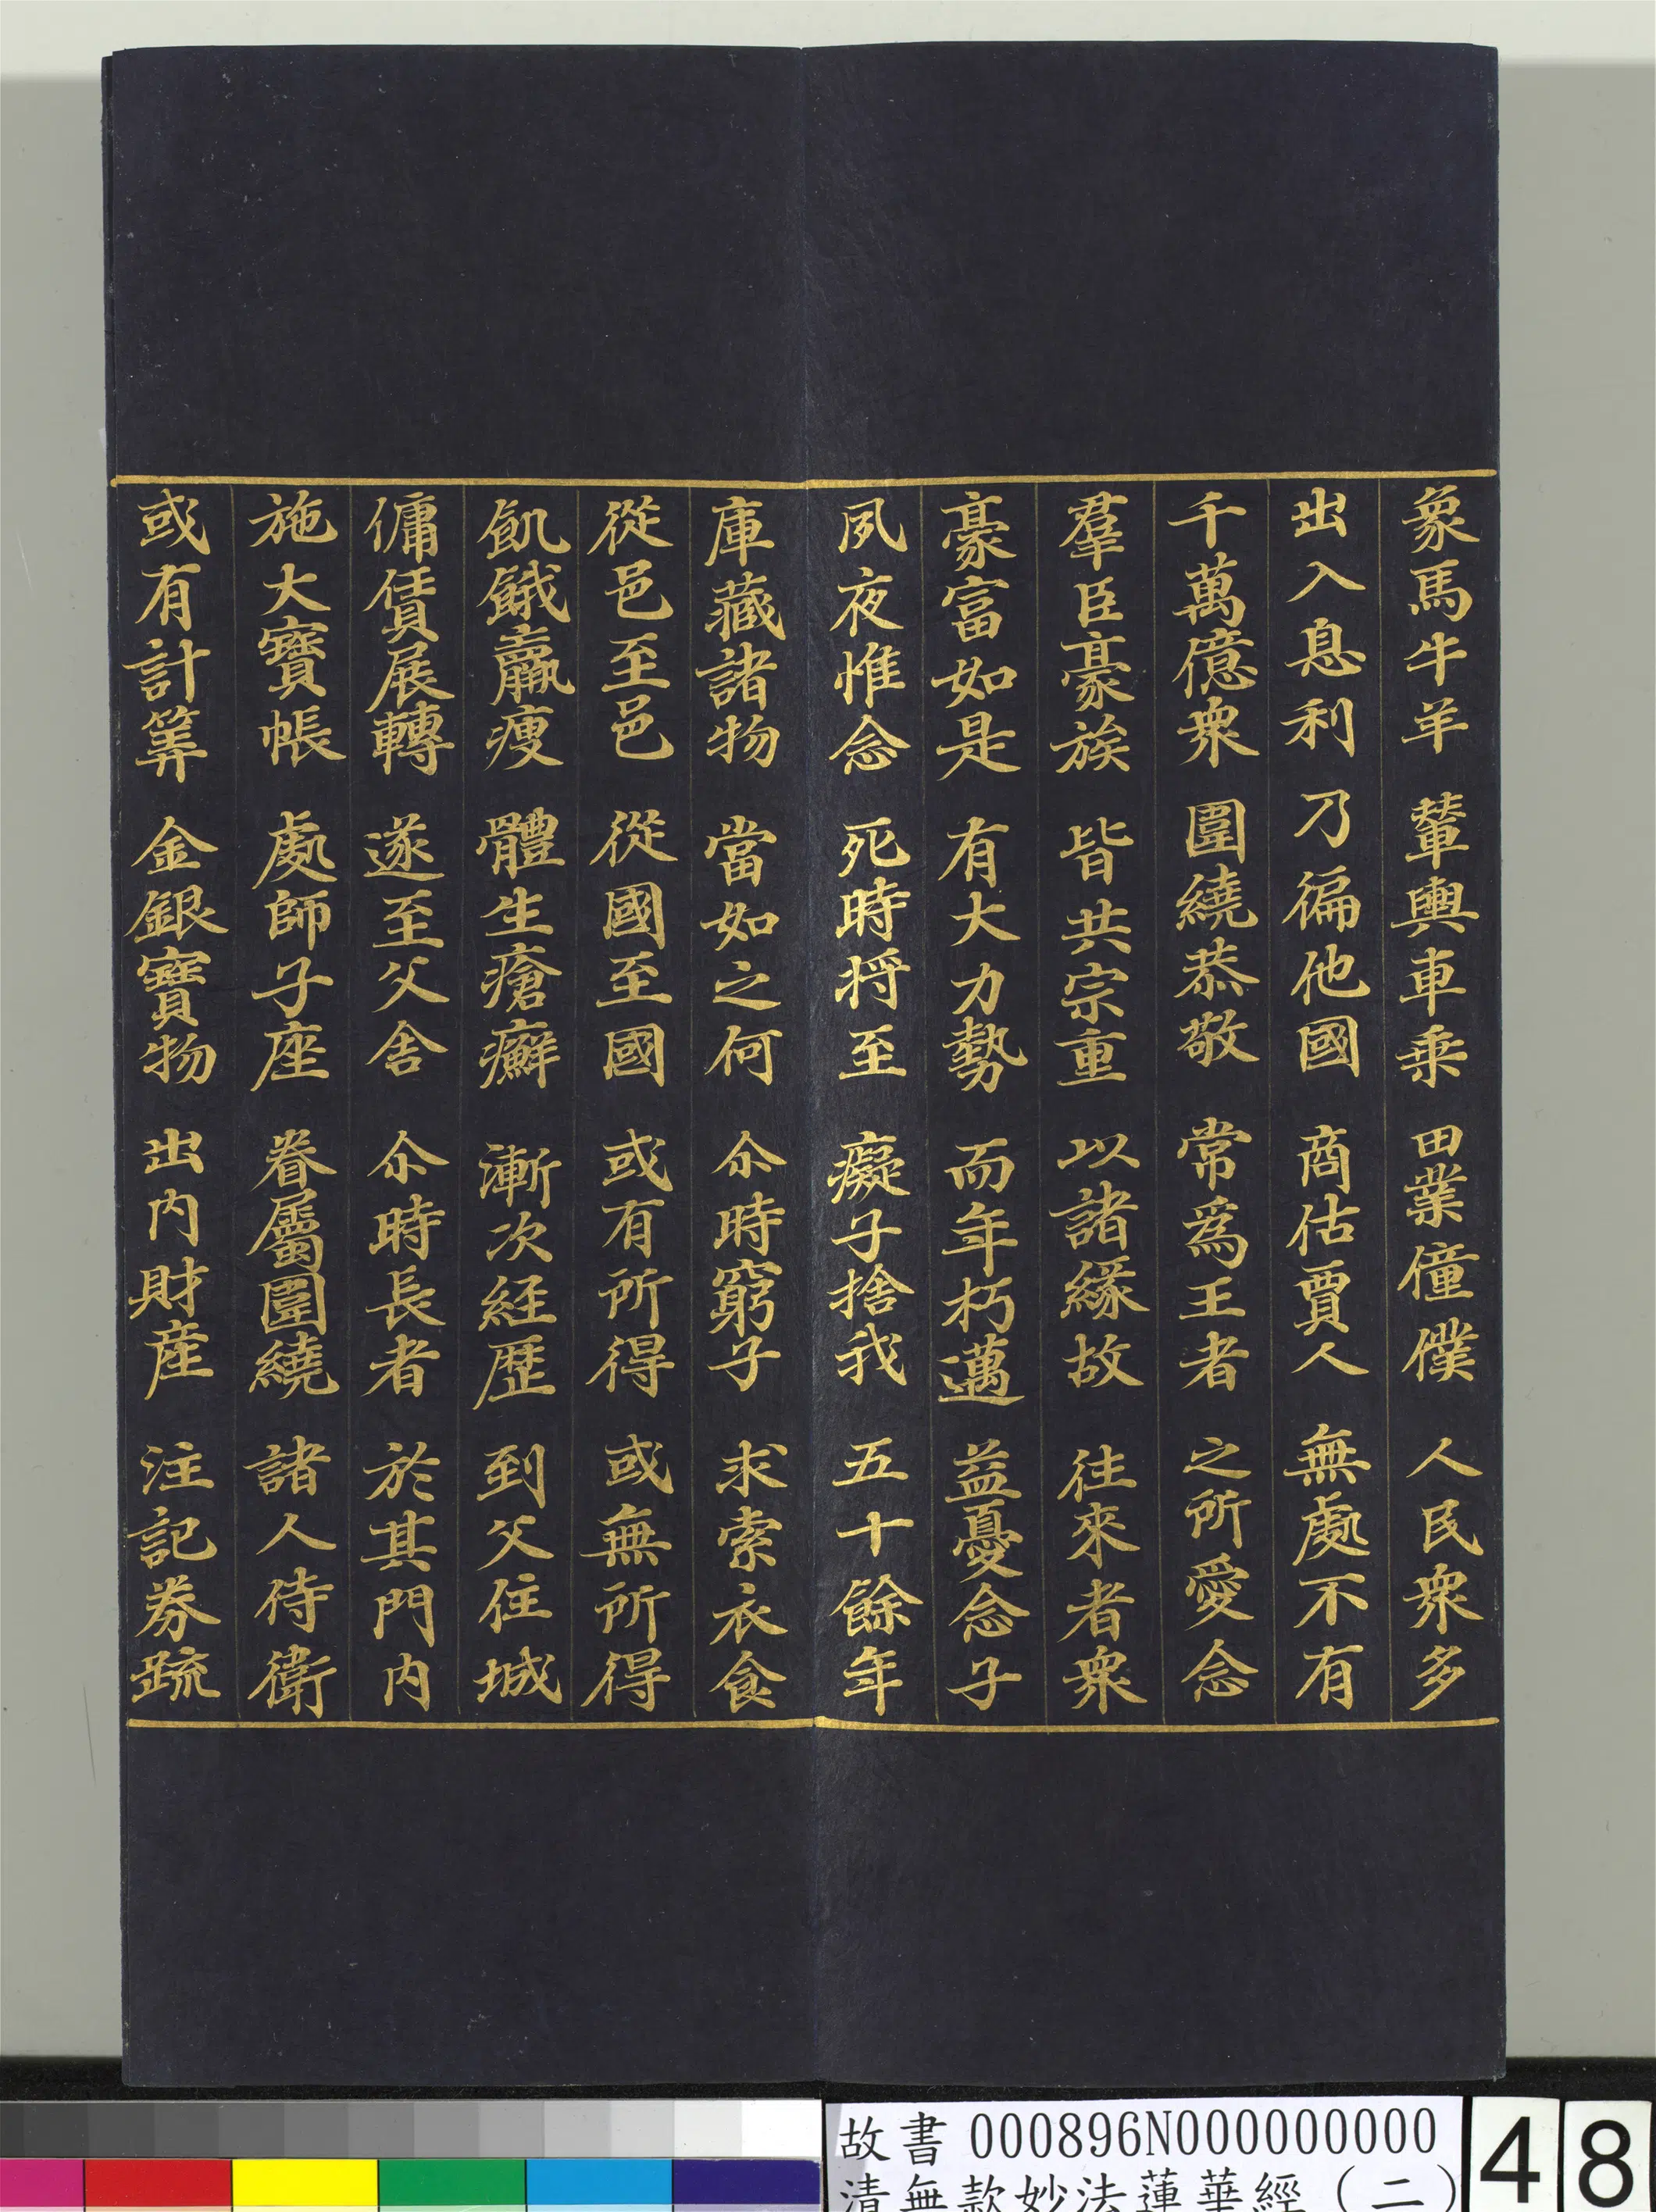 象馬牛羊 輦輿車乘 田業僮僕 人民衆多
出入息利 乃徧他國 商估賈人 無處不有
千萬億衆 圍繞恭敬 常爲王者 之所愛念
羣臣豪族 皆共宗重 以諸緣故 往來者衆
豪富如是 有大力勢 而年朽邁 益憂念子
夙夜惟念 死時将至 癡子捨我 五十餘年
庫藏諸物 當如之何 尒時窮子 求索衣食
從邑至邑 從國至國 或有所得 或無所得
飢餓羸瘦 體生瘡癬 漸次經歷 到父住城
傭賃展轉 遂至父舍 尒時長者 於其門内
施大寶帳 處師子座 眷屬圍繞 諸人侍衛
或有計筭 金銀寶物 出内財産 注記券疏
故書 000896N000000000
清無款妙法蓮華經（二）
48